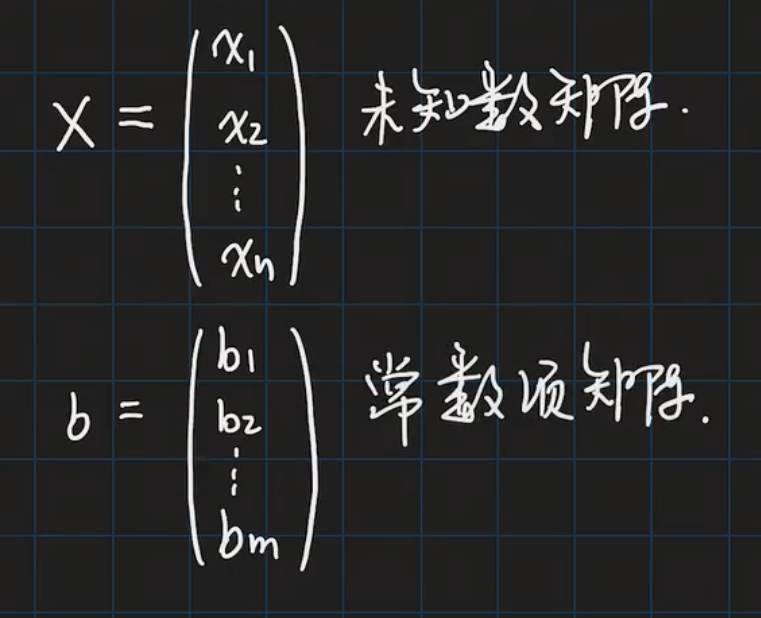 X = (x1 x2 ⋮ xn) 未知数矩阵.
b = (b1 b2 ⋮ bm) 常数项矩阵.